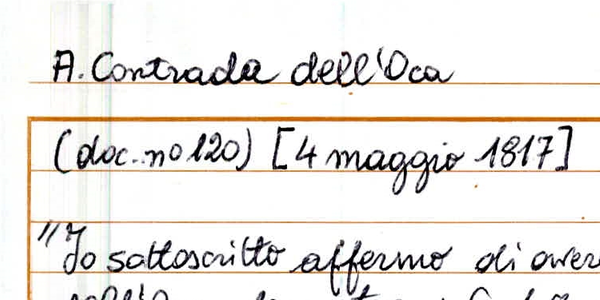 A. Contrada dell'Oca
(doc. no 120) [4 maggio 1817]
"Io sottoscritto affermo di aver